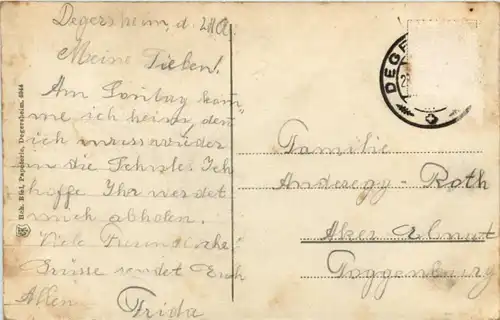 Degersheim, d.
Meine Lieben!
Am Sontag kom-
me ich heim, den
ich muss wieder
in die Schule. Ich
hoffe Ihr werdet
mich abholen.
Viele Freundliche
Grüsse sendet Euch
Allen Frida
Hch. Rist, Papeterie, Degersheim.
DEGE
Familie
Anderegg-Roth
Aker
Toggenburg